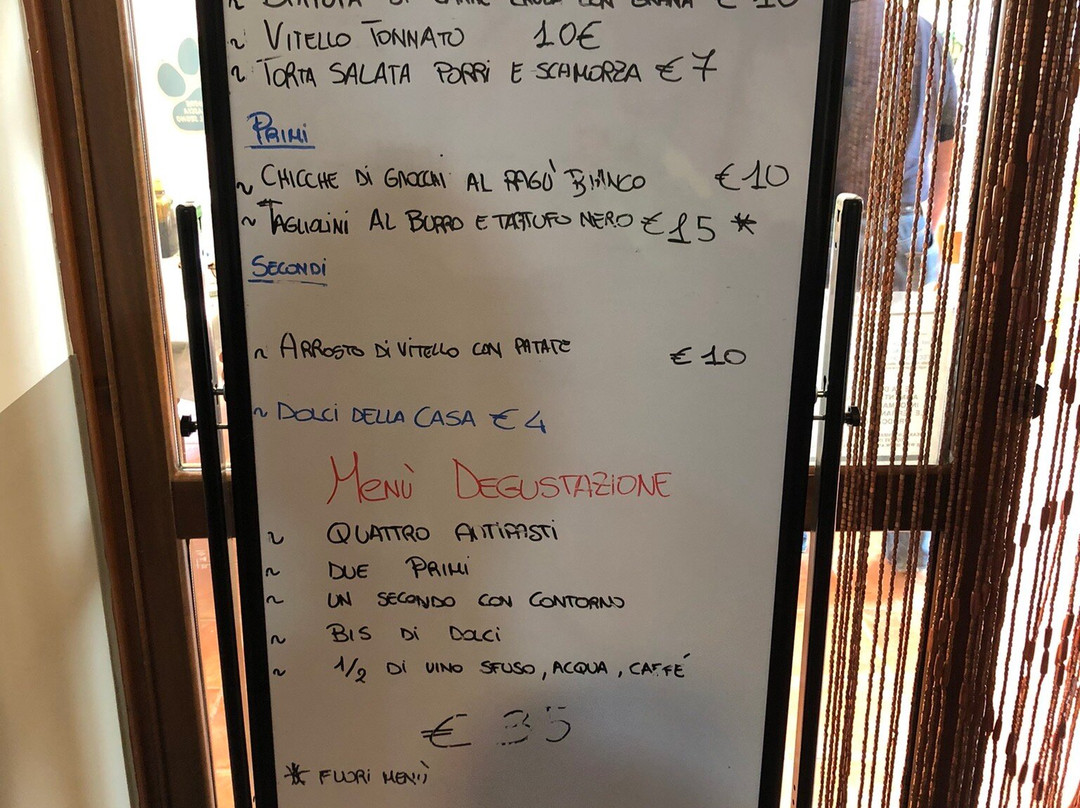 ~ BATTUTA DI CARNE CRUDA CON GRANA € 10
~ VITELLO TONNATO 10€
~ TORTA SALATA PORRI E SCAMORZA € 7
PRIMI
~ CHICCHE DI GNOCCHI AL RAGÙ BIANCO € 10
~ TAGLIOLINI AL BURRO E TARTUFO NERO € 15 *
SECONDI
~ ARROSTO DI VITELLO CON PATATE € 10
~ DOLCI DELLA CASA € 4
MENÙ DEGUSTAZIONE
~ QUATTRO ANTIPASTI
~ DUE PRIMI
~ UN SECONDO CON CONTORNO
~ BIS DI DOLCI
~ 1/2 DI VINO SFUSO, ACQUA, CAFFÉ
€ 35
* FUORI MENÙ